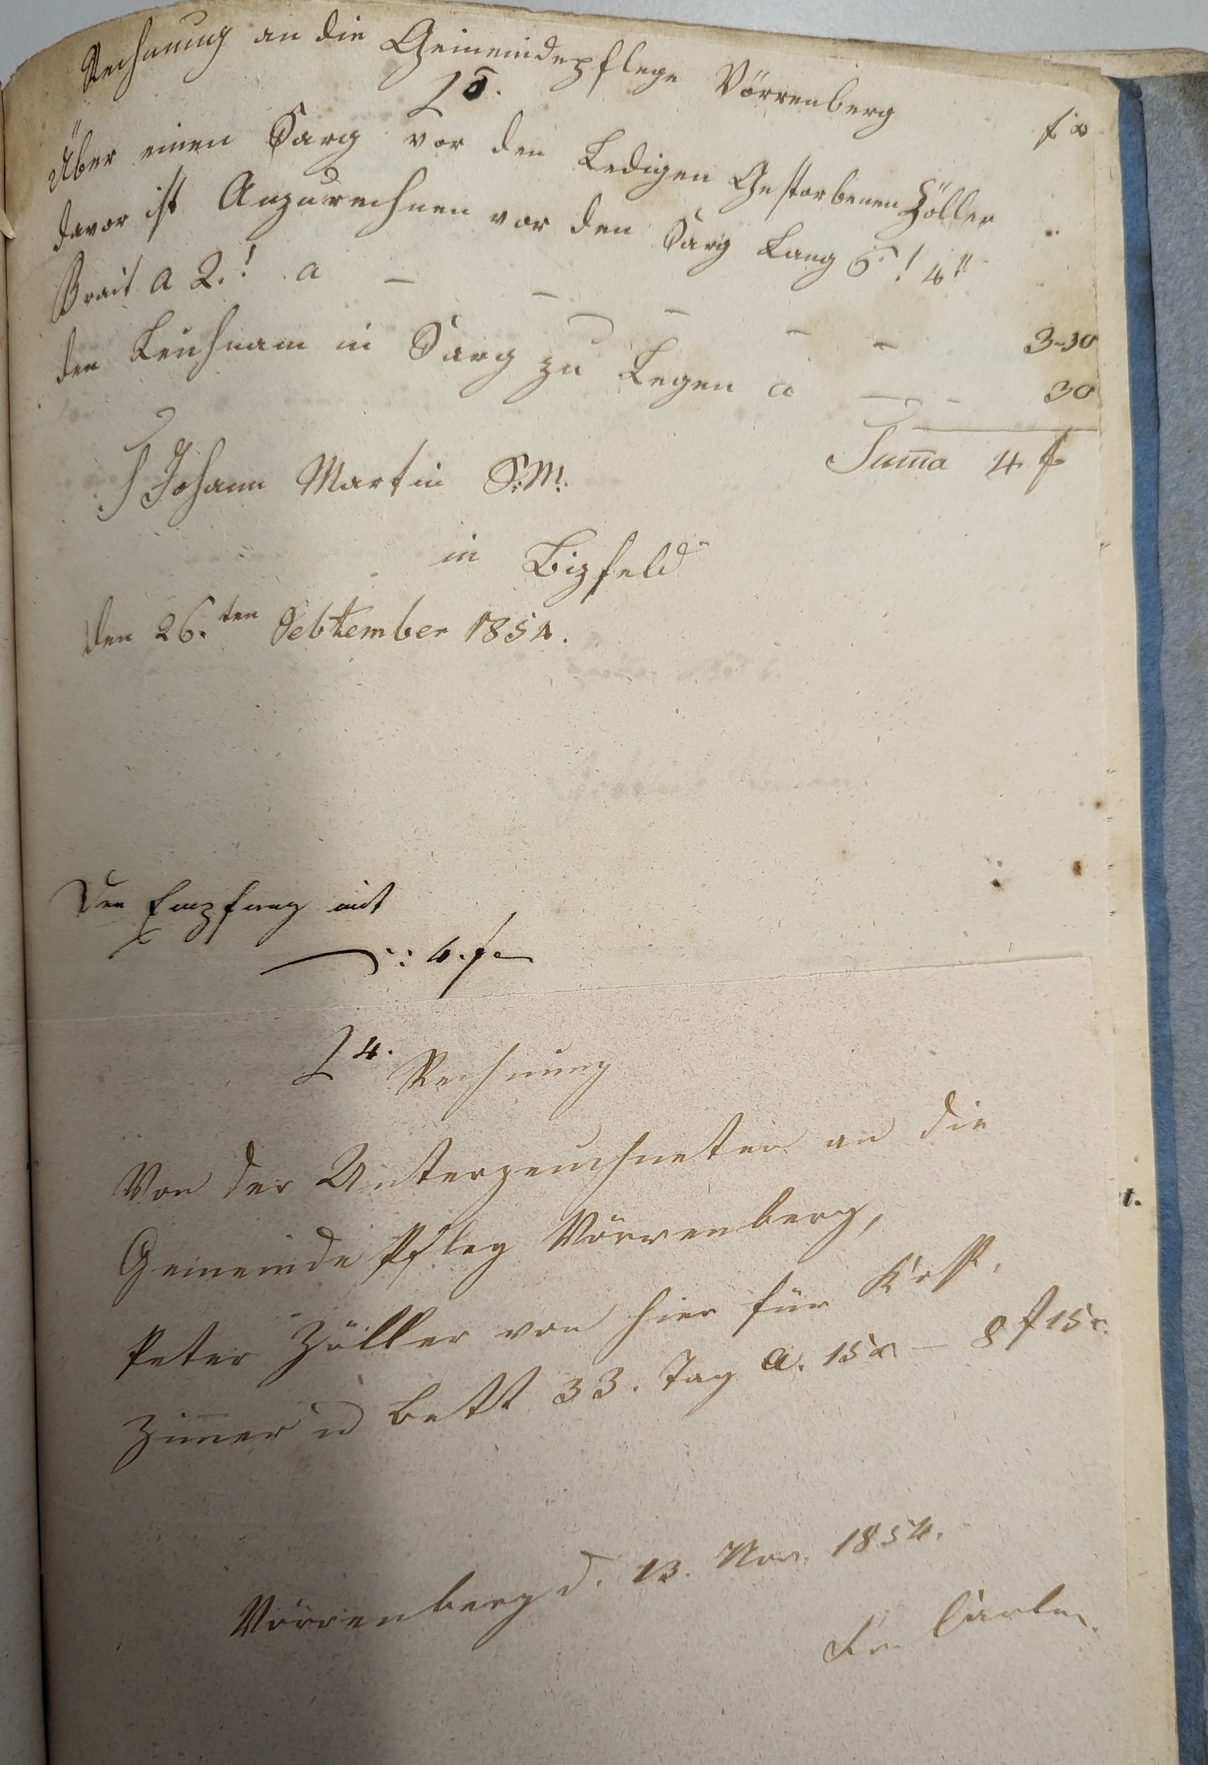 Rechnung an die Gemeindepflege Vörrenberg
25.
f x
Über einen Sarg vor den Ledigen Gestorbenen Zöller
davor ist Anzurechnen vor den Sarg Lang 6! 4"
Brait a 2.! a — — — — —
3-30
den Leichnam in Sarg zu Legen a — -
30
Suma 4 f
T Johann Martin S:M:
in Bizfeld
den 26.ten Sebtember 1854.
Den Empfang mit
—:: 4. f
24.
Rechnung
Von der Unterzeuchneten an die
Gemeinde Pfleg Vörrenberg,
Peter Zöller von hier für Kost,
Zimer u Bett 33. Tag a. 15x — 8 f 15x.
Vörrenberg d. 13. Nov. 1854.
t.